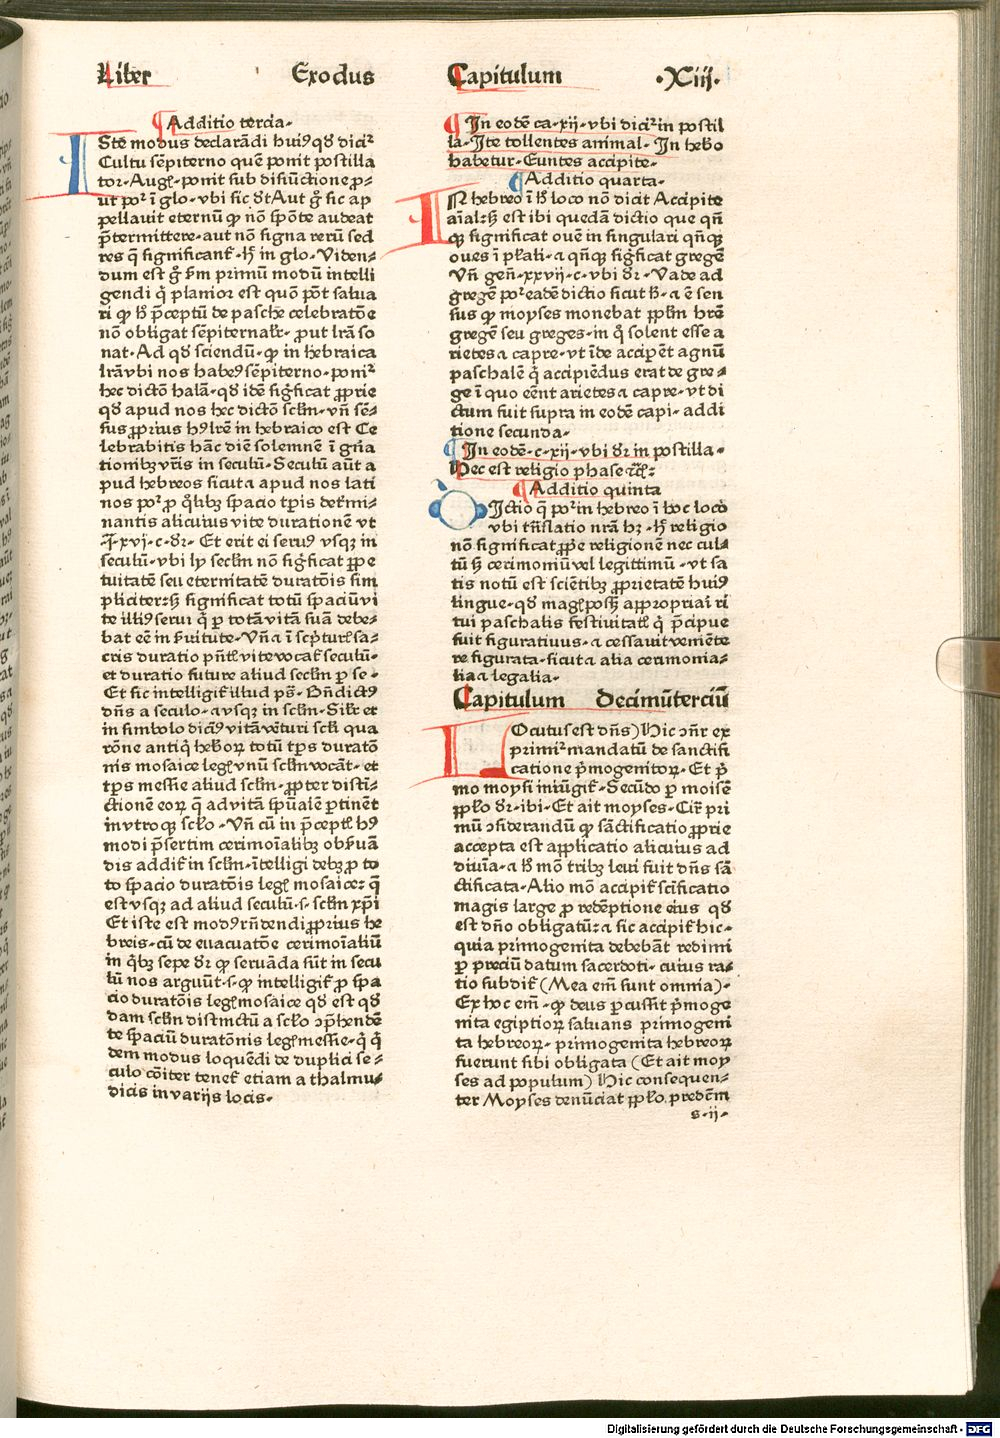 Liber Exodus Capitulum ·Xiij·
Additio tercia·
ISte modus declarādi huiꝰ qđ diciᷣ
Cultu sēpiterno quē ponit postilla
tor· Augꝭ· ponit sub disiūctione p̱=
ut poᷣ ī glo· vbi sic đt Aut ḡ sic ap
pellauit eternū ꝙ nō spōte audeat
p̄termittere· aut nō signa rerū sed
res q̄ significant᷑· hᷣ in glo· Viden=
dum est ḡ ẜm primū modū intelli
gendi qͥ planior est quō pōt salua
ri ꝙ hᷣ p̄ceptū de pasche celebratōe
nō obligat sēpiternalr̄· ꝓut lr̄a so
nat· Ad qđ sciendū· ꝙ in hebraica
lr̄a vbi nos habeꝰ sēpiterno· poniᷣ
hec dictō halā· qđ idē sig̅ficat ꝓprie
qđ apud nos hec dictō sclm̄· vn̄ sē=
sus ꝓprius hꝰ lr̄e in hebraico est Ce
lebrabitis hāc diē solemnē ī gn̄a
tionibꝫ vr̄is in seculū· Seculū aūt a
pud hebreos sicut a apud nos lati
nos poᷣ ꝓ qͥbꝫ spacio tp̄is determi=
nantis alicuius vite durationē vt
·xvi·c· đr· Et erit ei seruꝰ vsqꝫ in
seculū· vbi ly seclm̄ nō sig̅ficat ꝑpe
tuitatē seu eternitatē duratōis sim
pliciter· sꝫ significat totū spaciū vi
te illiꝰ serui qͥ ꝑ totā vitā suā debe=
bat eē in ẜuitute· Vn̄ a ī scͥpturꝭ sa=
cris duratio pn̄tꝭ vite vocat᷑ seculū·
et duratio future aliud seclm̄ ꝑ se·
Et sic intelligit᷑ illud ps̄· Bn̄dictꝰ
dn̄s a seculo· a vsqꝫ in sclm̄· Silr̄ et
in simbolo dicit᷑ vitā vēturi scl̄i qua
rōne antiqͥ hebꝫorꝝ totū tp̄s duratō
nis mosaice legꝭ vnū sclm̄ vocāt· et
tp̄s messie aliud sclm̄· ꝓpter disti=
ctionē eorꝝ q̄ ad vitā sp̄ualē ꝑtinēt
in vtroqꝫ scl̄o· Vn̄ cū in p̄ceptꝭ hꝰ
modi p̄sertim cerimoīalibꝫ obẜuā
dis addit᷑ in sclm̄· īntelligi debꝫ ꝓ to
to spacio duratōis legꝭ mosaice: q̄
est vsqꝫ ad aliud seculū· s· sclm̄ xp̄i
Et iste est modꝰ rn̄dendi ꝓprius he
breis· cū de euacuatōe cerimoīaliū
in qͥbꝫ sepe đr ꝙ seruāda sūt in secu
lū nos arguūt· s· ꝙ intelligit᷑ ꝓ spa
cio duratōis legꝭ mosaice qđ est qđ
dam sclm̄ distinctū a scl̄o ꝯp̄hendē
te spaciū duratōnis legꝭ messie· qͥ qͥ
dem modus loquēdi de duplici se=
culo cōiter tenet᷑ etiam a thalmu=
dicis in varijs locis·
In eodē ca· xij· vbi diciᷣ in postil
la· Ite tollentes animal· In hebo
habetur· Euntes accipite·
Additio quarta·
IN hebreo ī hᷣ loco nō dicit Accipite
aīal: sꝫ est ibi quedā dictio que qn̄
qꝫ significat ouē in singulari qn̄qꝫ
oues ī pl̄ali· a qn̄qꝫ sig̅ficat gregē
Vn̄ gen̄· xxvij· c· vbi đr· Vade ad
gregē poᷣ eadē dictio sicut hᷣ· a ē sen
sus ꝙ moyses monebat ppl̄m hr̄e
gregē seu greges· in qͥ solent esse a
rietes a capre· vt īde acciperēt agnū
paschalē qͥ accipiēdus erat de gre=
ge ī quo eēnt arietes a capre· vt di
ctum fuit supra in eodē capi· addi
tione secunda·
In eodē· c· xij· vbi đr in postilla·
Hec est religio phase
Additio quinta
DIctio q̄ poᷣ in hebreo ī hoc loco
vbi trn̄slatio nr̄a hꝫ· hᷣ religio
nō significat ꝓpͥe religionē nec cul=
tū sꝫ cerimoniū vel legittimū· vt sa
tis notū est sciētibꝫ ꝓprietatē huiꝰ
lingue· qđ magꝭ poss̄ appropriari ri
tui paschalis festiuitatꝭ qͥ p̄cipue
fuit figuratiuus· a cessauit veniēte
re figurata· sicut a alia cerimonia=
lia a legalia·
Capitulum decimūterciū
LOcutus est dn̄s) Hic ꝯn̄r ex
primiᷣ mandatū de sanctifi
catione pͥmogenitorꝝ· Et pͥ
mo moysi iniūgit᷑· Secūdo ꝑ moisē
ppl̄o đr· ibi· Et ait moyses· Cir̄ pri
mū ꝯsiderandū ꝙ sāctificatio ꝓprie
accepta est applicatio alicuius ad
diuīa· a hᷣ mō tribꝫ leui fuit dn̄s sā
ctificata· Alio mō accipit᷑ scīficatio
magis large ꝓ redēptione eius qđ
est dn̄o obligatū: a sic accipit᷑ hic·
quia primogenita debebāt redimi
ꝑ preciū datum sacerdoti· cuius ra=
tio subdit᷑ (Mea em̄ sunt omnia)·
Ex hoc em̄· ꝙ deus ꝑcussit pͥmoge
nita egiptiorꝝ saluans primogeni
ta hebreorꝝ· primogenita hebreorꝝ
fuerunt sibi obligata (Et ait moy
ses ad populum) Hic consequen=
ter Moyses denūciat ppl̄o predēm
s·ij·
Digitalisierung gefördert durch die Deutsche Forschungsgemeinschaft - DFG